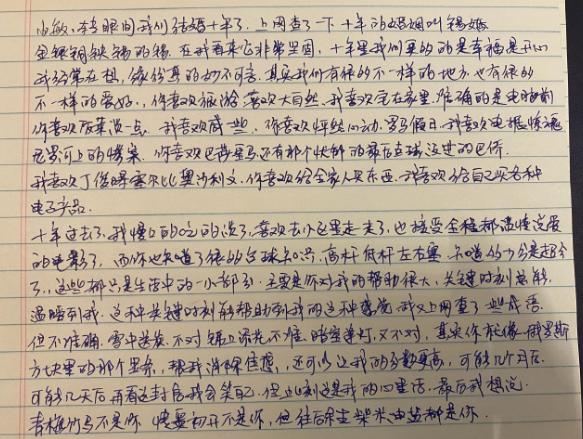 小敏,本与眼间我们结婚十年了,上网查了一下十年的婚姻叫锡婚
金银铜铁锡的锡.在我看来它非常坚固,十年里我们要的的是幸福是开心
我经常在想,缘份真的妙不可言.其实我们有很的不一样的地方.也有很的
不一样的爱好.你喜欢 喜欢大自然.我喜欢宅在家里.准确的是电脑前
你喜欢饭菜淡一点.我喜欢咸一些.你喜欢怦然心动.罗马假日.我喜欢电锯惊魂
尼罗河上的惨案.你喜欢巴塞罗马还有那个快解的 没过的巴侨.
我喜欢丁俊晖塞尔比奥沙利文.你喜欢给全家人买东西.我喜欢给自己买各种
电子产品.
十年过去了.我慢的吃的淡了.喜欢去小区里走走了,也接受全程都温情浪漫
的电影了.而你也知道了很的台球知识,高杆低杆左右塞.知道的十分是超分
了,这些都只是生活中的一小部分.主要是你对我的帮助很大,关键时刻总能
温暖到我.这种关键时刻能帮助到我的这种感觉.我又上网查了些成语
但不准确.雪中送炭.不对 锦上添花不准.暗室逢灯,又不对.其实你就像俄罗斯
方块里的那个 ,帮我消除焦虑,还可以让我的分数更高,可能几个月后.
可能几天后再看这封信我会笑自己.但此刻这是我的心里话.最后我想说.
青梅竹马不是你 情窦初开不是你,但往后余生柴米油盐都是你.